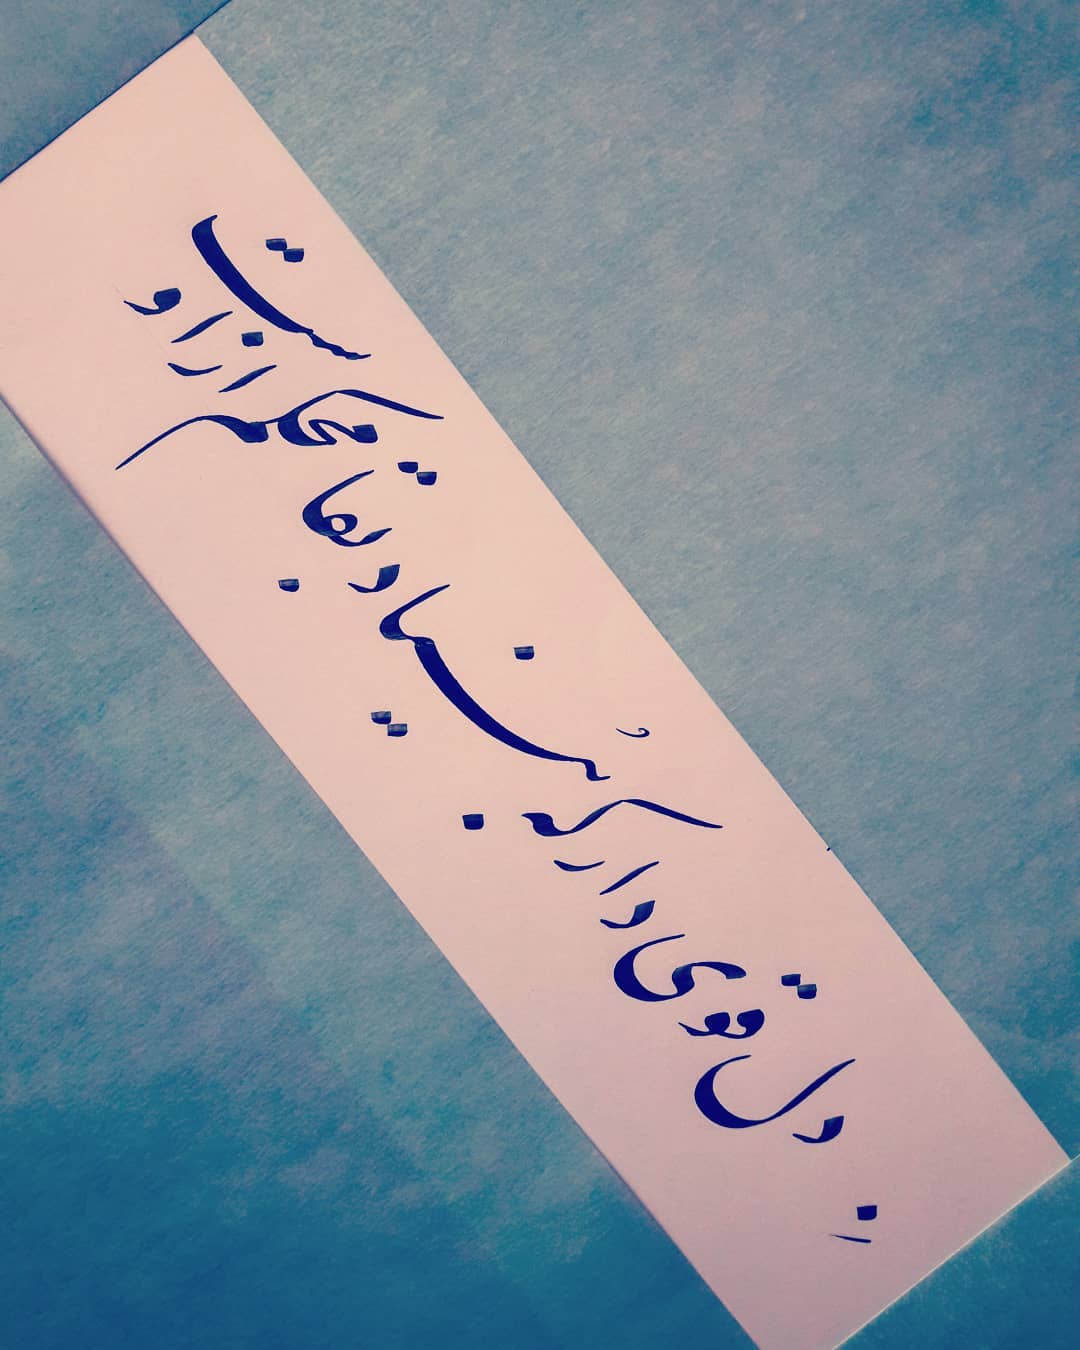 دل قوی دار که بُنیاد بقا محکم از اوست